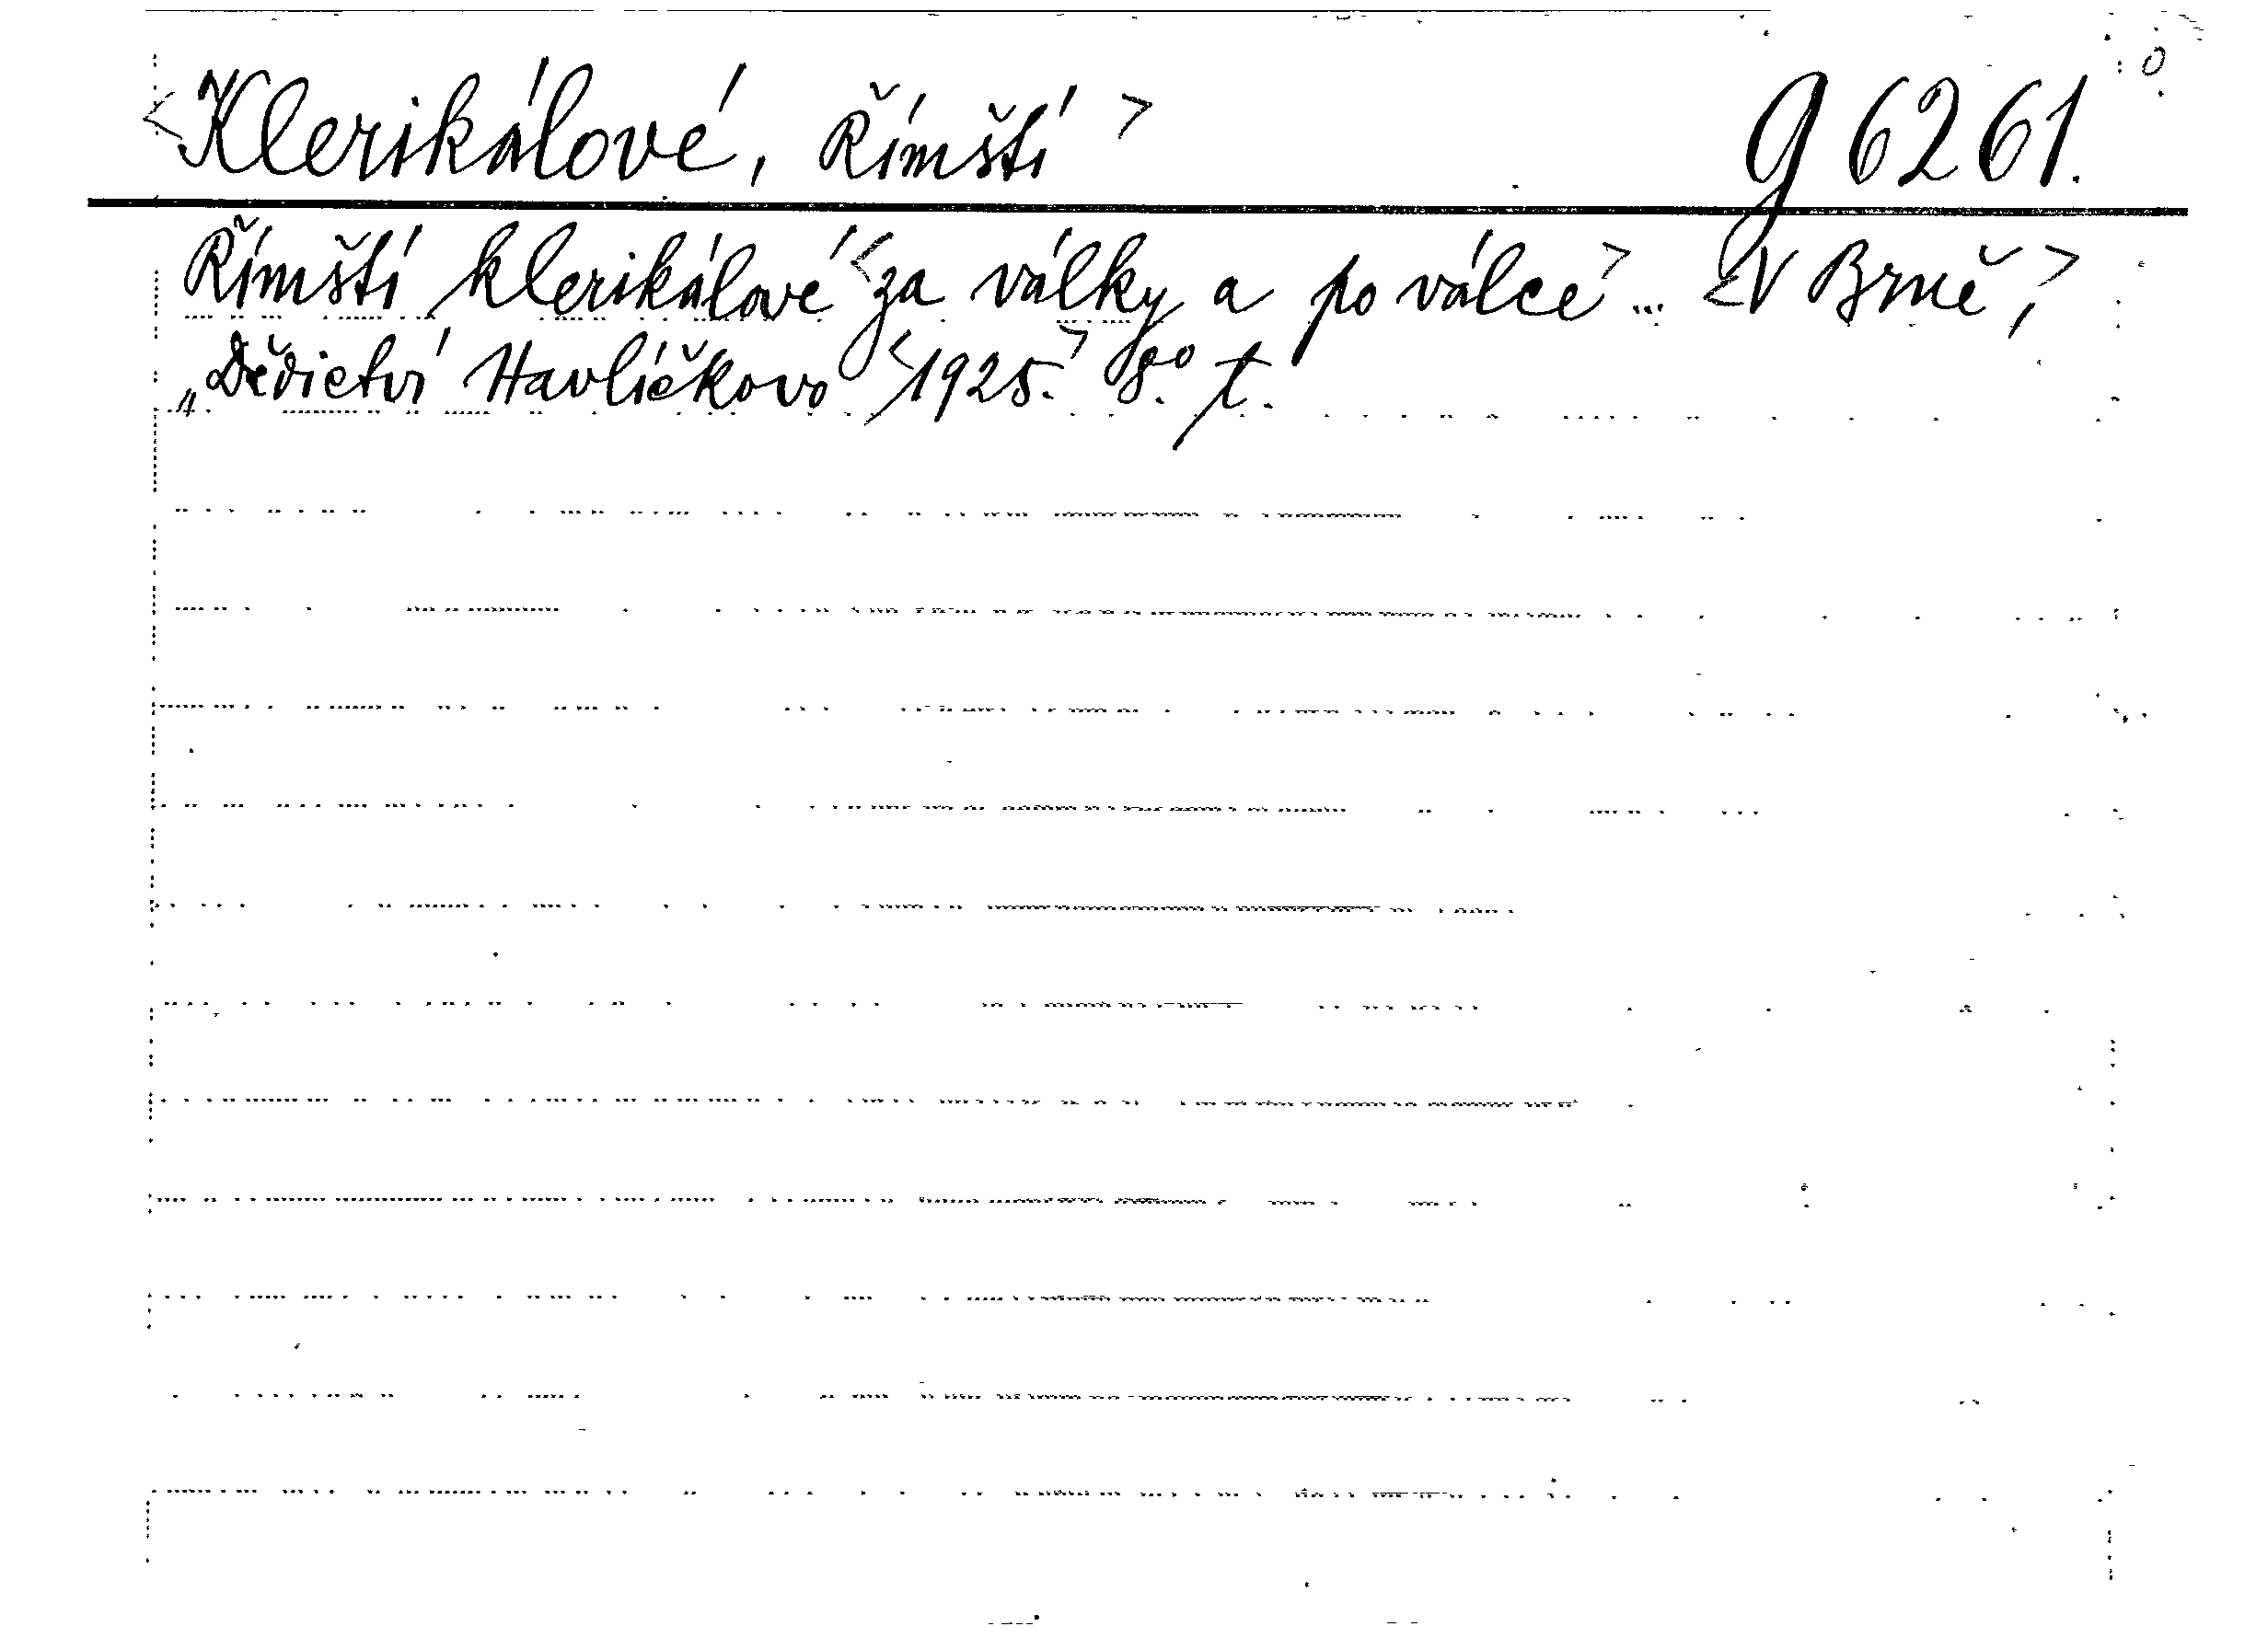 <Klerikálové, Římští> g 6261.
Římští klerikálové <za války a po válce> ... <V Brně,>
„Dědictví Havlíčkovo" <1925.> 8°. t.